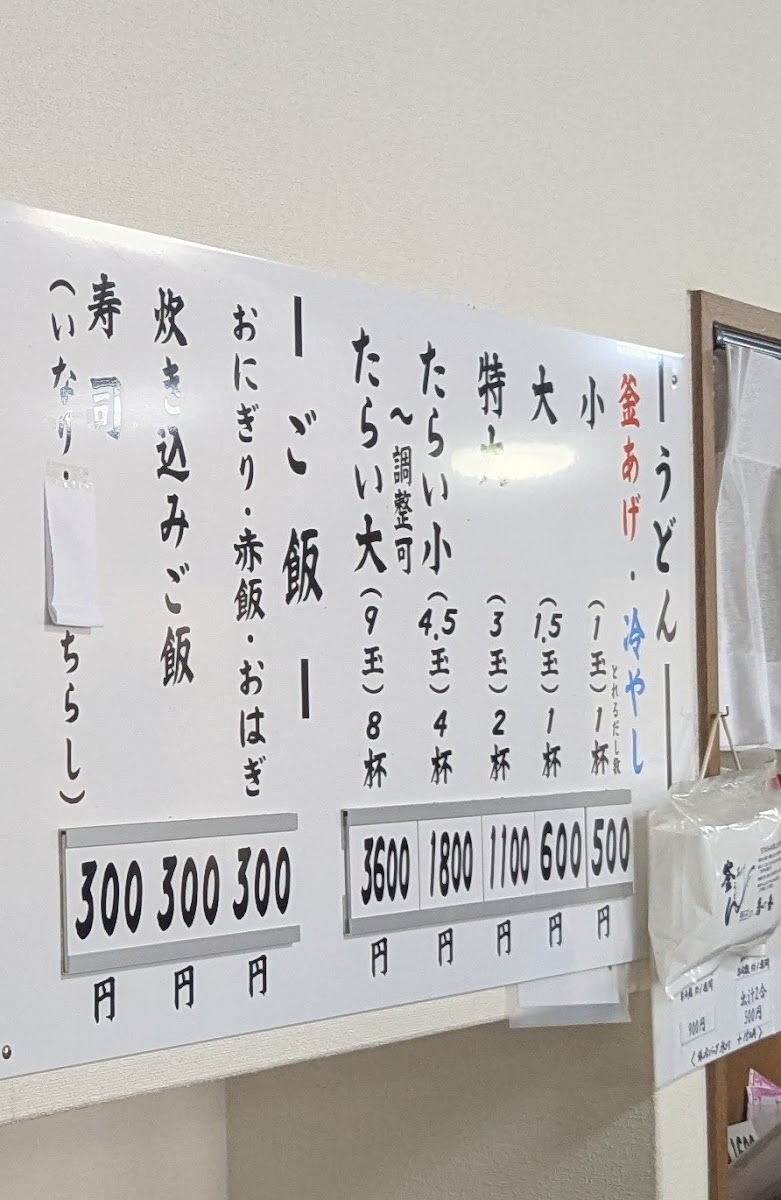 うどん
釜あげ・冷やし
とれるだし数
小 (1玉) 1杯 500円
大 (1.5玉) 1杯 600円
特大 (3玉) 2杯 1100円
たらい小 (4.5玉) 4杯 1800円
〜調整可
たらい大 (9玉) 8杯 3600円
ご飯
おにぎり・赤飯・おはぎ 300円
炊き込みご飯 300円
寿司 300円
(いなり・ちらし)
出汁2合
300円
300円